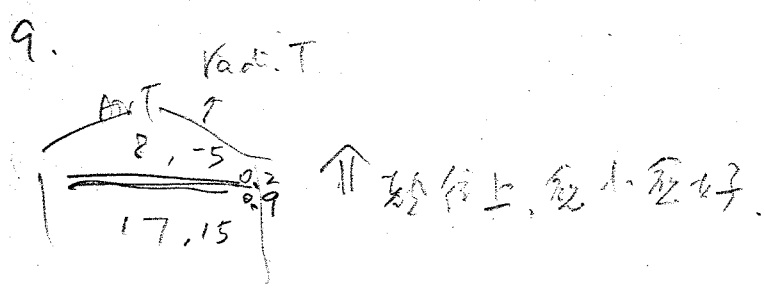 9.
Rad. T
Air T
8, -5
0.2
0.9
17, 15
熱往上, 愈小愈好.